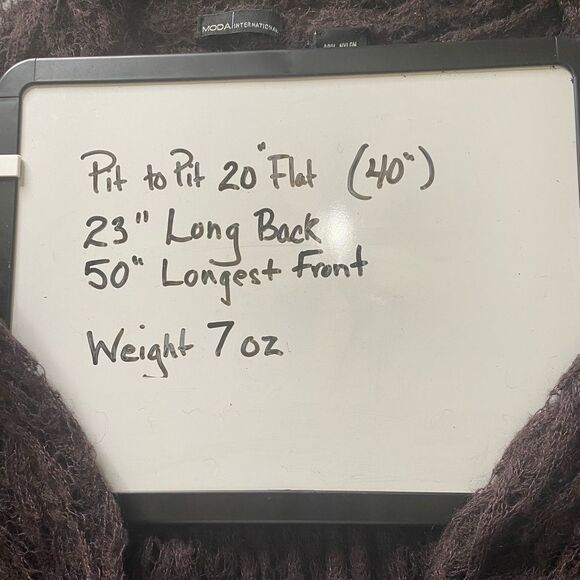 MODA INTERNATIONAL
Pit to Pit 20" Flat (40")
23" Long Back
50" Longest Front
Weight 7 oz